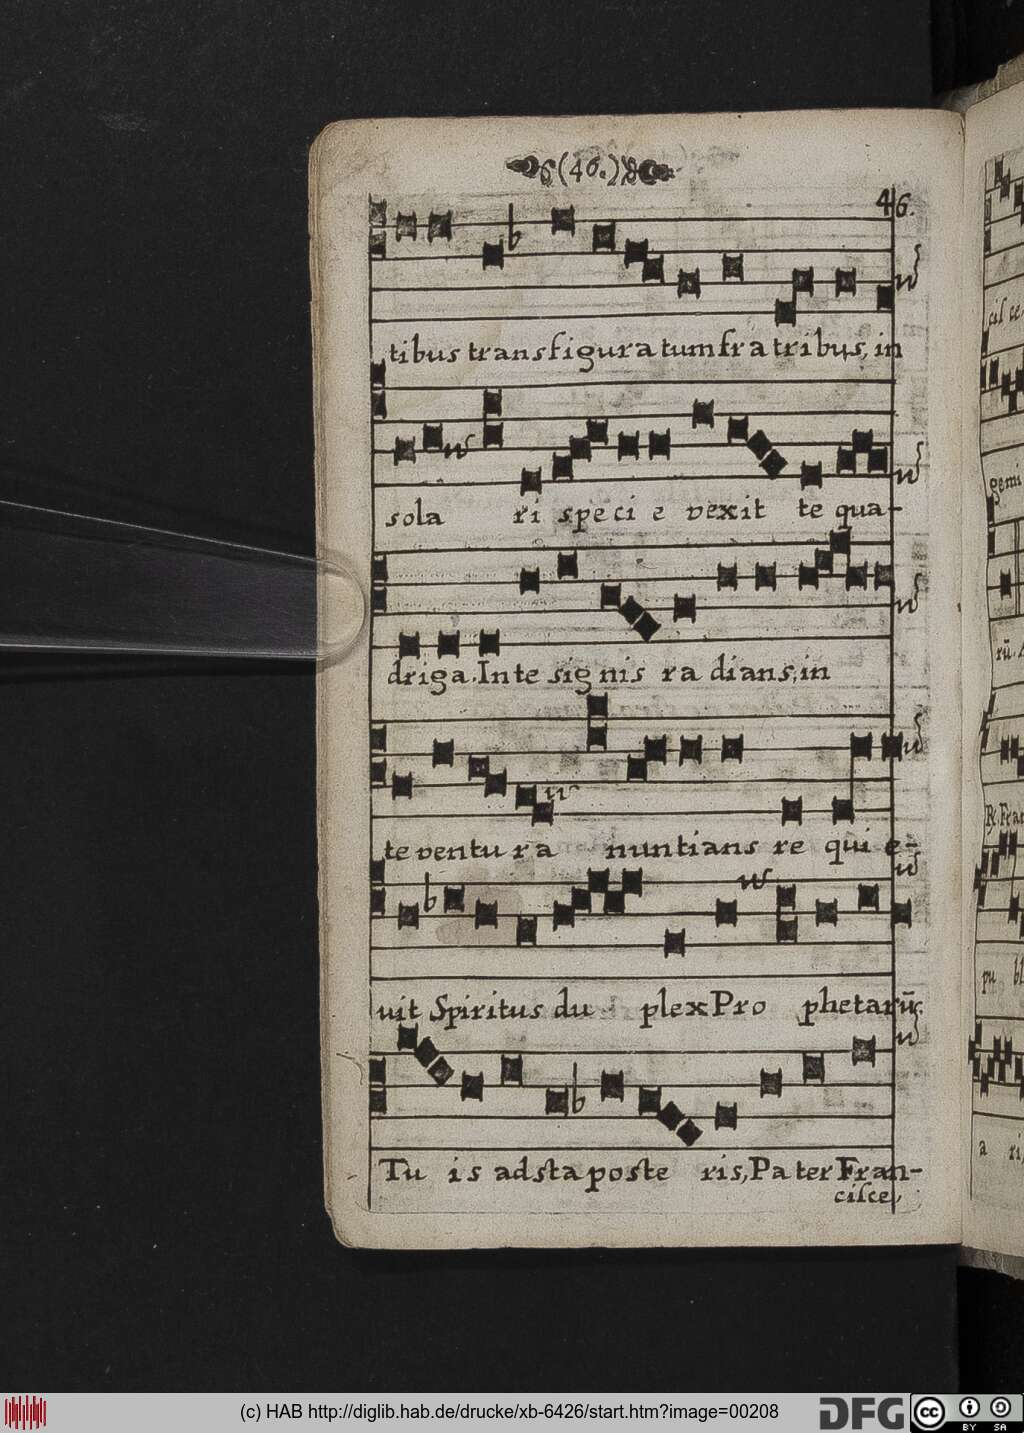 (46.)
46.
tibus transfigura tum fra tribus, in
sola ri speci e vexit te qua-
driga. In te signis ra dians, in
te ventura nuntians re qui e-
vit Spiritus du plex Pro phetarū.
Tu is adsta poste ris, Pater Fran-
cisce,
cis ce,
gemi
rū.
℟. Fran
pu bl
a ri,
(c) HAB http://diglib.hab.de/drucke/xb-6426/start.htm?image=00208
DFG
cc
BY SA